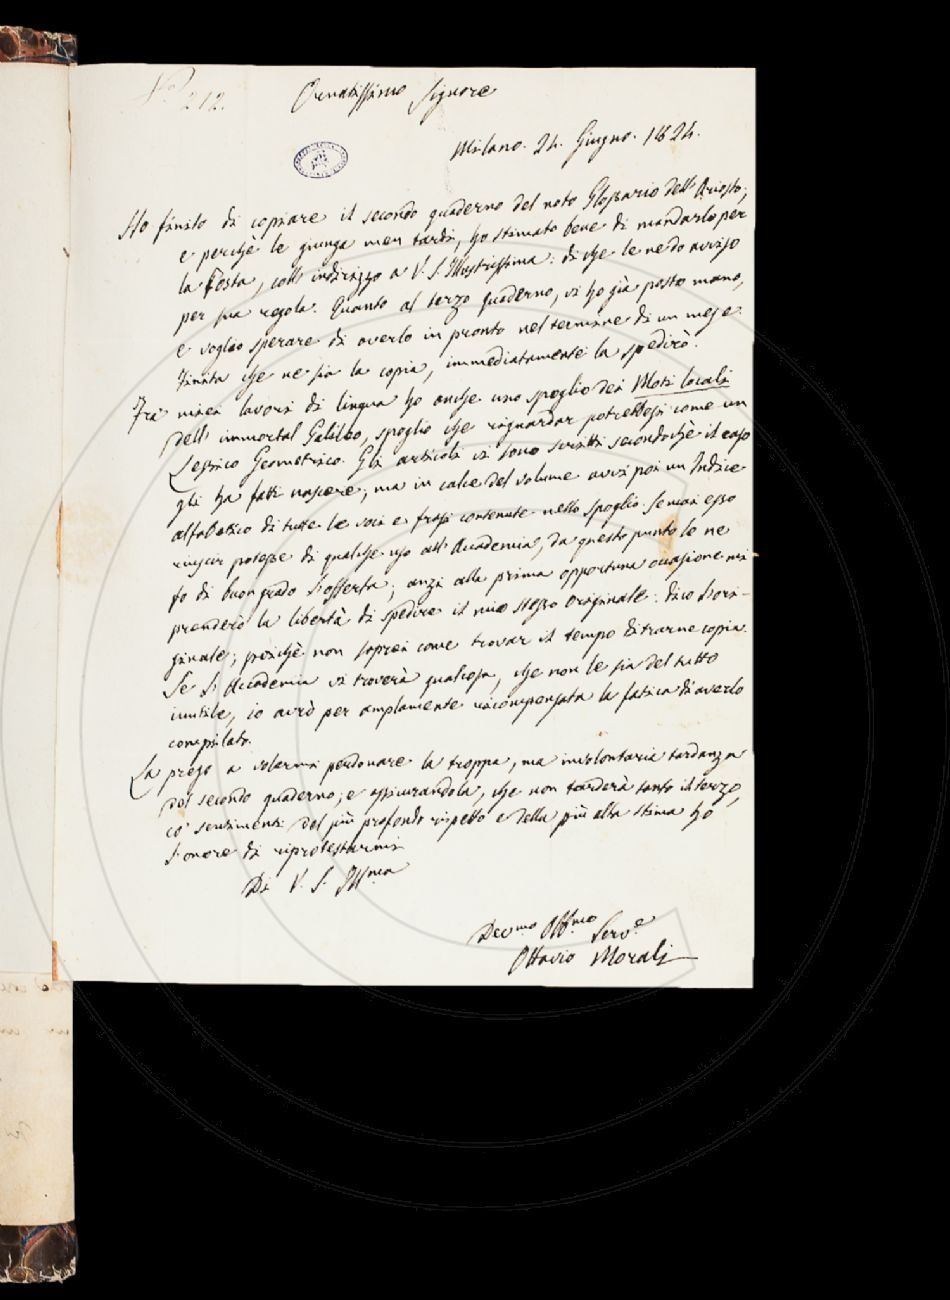 N.º 212.
Ornatissimo Signore
Milano. 24. Giugno. 1824.
Ho finito di copiare il secondo quaderno del noto Glossario dell'Ariosto;
e perchè le giunga men tardi, ho stimato bene di mandarlo per
la Posta, coll'indirizzo a V. S. Illustrissima: di che le ne do avviso
per sua regola. Quanto al terzo quaderno, vi ho già posto mano,
e voglio sperare di averlo in pronto nel termine di un mese.
Finita che ne sia la copia, immediatamente la spedirò.
Fra' miei lavori di lingua ho anche uno spoglio dei Moti locali
dell'immortal Galileo, spoglio che riguardar potrebbesi come un
Lessico Geometrico. Gli articoli vi sono scritti secondochè il caso
gli ha fatti nascere; ma in calce del volume avvi poi un Indice
alfabetico di tutte le voci e frasi contenute nello spoglio. Se mai esso
riuscir potesse di qualche uso all'Accademia, da questo punto le ne
fo di buon grado l'offerta; anzi alla prima opportuna occasione mi
prenderò la libertà di spedire il mio stesso originale: dico l'ori-
ginale; poichè non saprei come trovar il tempo di trarne copia.
Se l'Accademia vi troverà qualcosa, che non le sia del tutto
inutile, io avrò per amplamente ricompensata la fatica di averlo
compilato.
La prego a volermi perdonare la troppa, ma involontaria tardanza
del secondo quaderno; e assicurandola, che non tarderà tanto il terzo,
co' sentimenti del più profondo rispetto e della più alta stima ho
l'onore di riprotestarmi
Di V. S. Ill.ma
Dev.mo Obb.mo Serv.e
Ottavio Morali